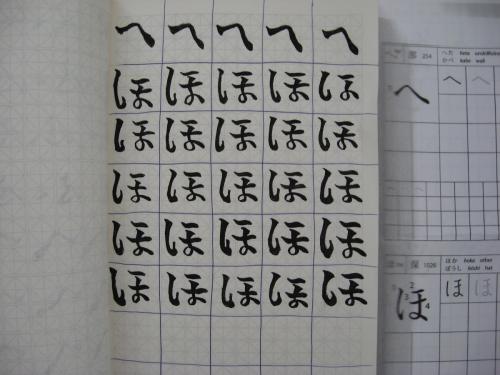 へ へ へ へ へ
ほ ほ ほ ほ ほ
ほ ほ ほ ほ ほ
ほ ほ ほ ほ ほ
ほ ほ ほ ほ ほ
ほ ほ ほ ほ ほ
254 へた heta
かべ kabe wall
へ へ へ
保 1026 ほか hoka other
ぼうし bōshi hat
1 2 3 4
ほ ほ ほ